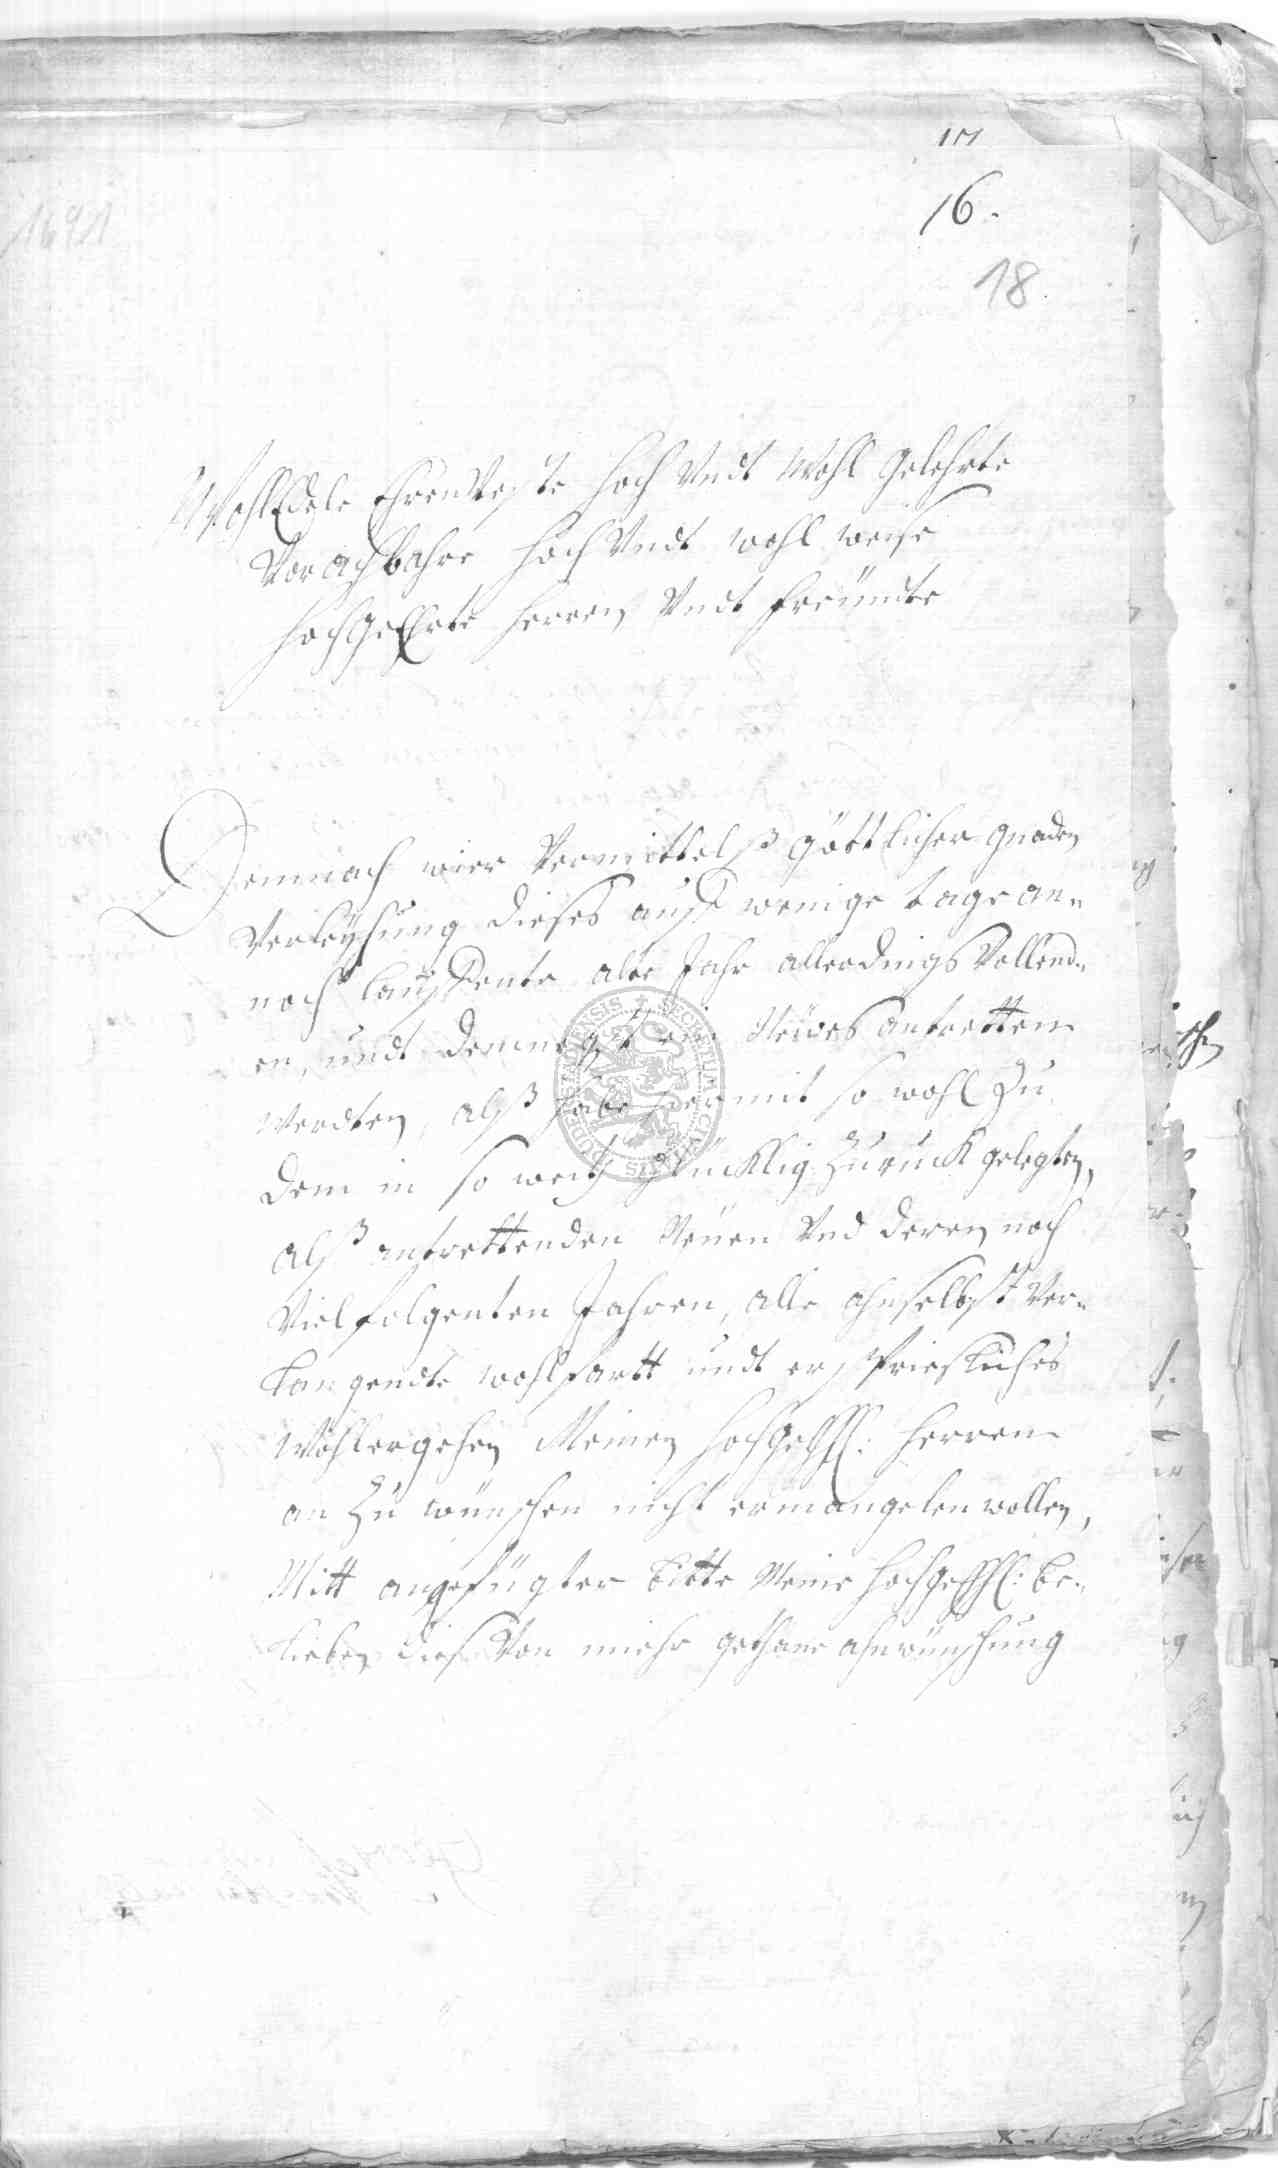 17
16.
18
1691
WohlEdele Ehrenveste Hoch Undt Wohl gelehrte
Vorachbahre Hoch Undt wohl weise
HochgeEhrte Herren Undt freündte
Demnach wier Vermittelß göttlicher gnaden
Verleyhung dieses auff wenige tage an-
noch lauffente alte Jahr allerdings Vollend-
en, undt demnegst ein Neues antretten
Werdten, alß habe hiermit so wohl Zu
dem in so weith glücklig Zuruck gelegten,
alß antrettenden Neuen Und deren noch
Viel folgenten Jahren, alle ahnselbst Ver-
langendte wohlfartt undt ersprießliches
Wohlergehen Meinen Hochgehh: Herren
an Zu wünschen nicht ermangelen wollen,
Mitt angefügter bitte Meine Hochgehh: be-
lieben dieß Von miehr gethane ahnwünschung
SECRETUM CIVITATIS DUDERSTADIENSIS